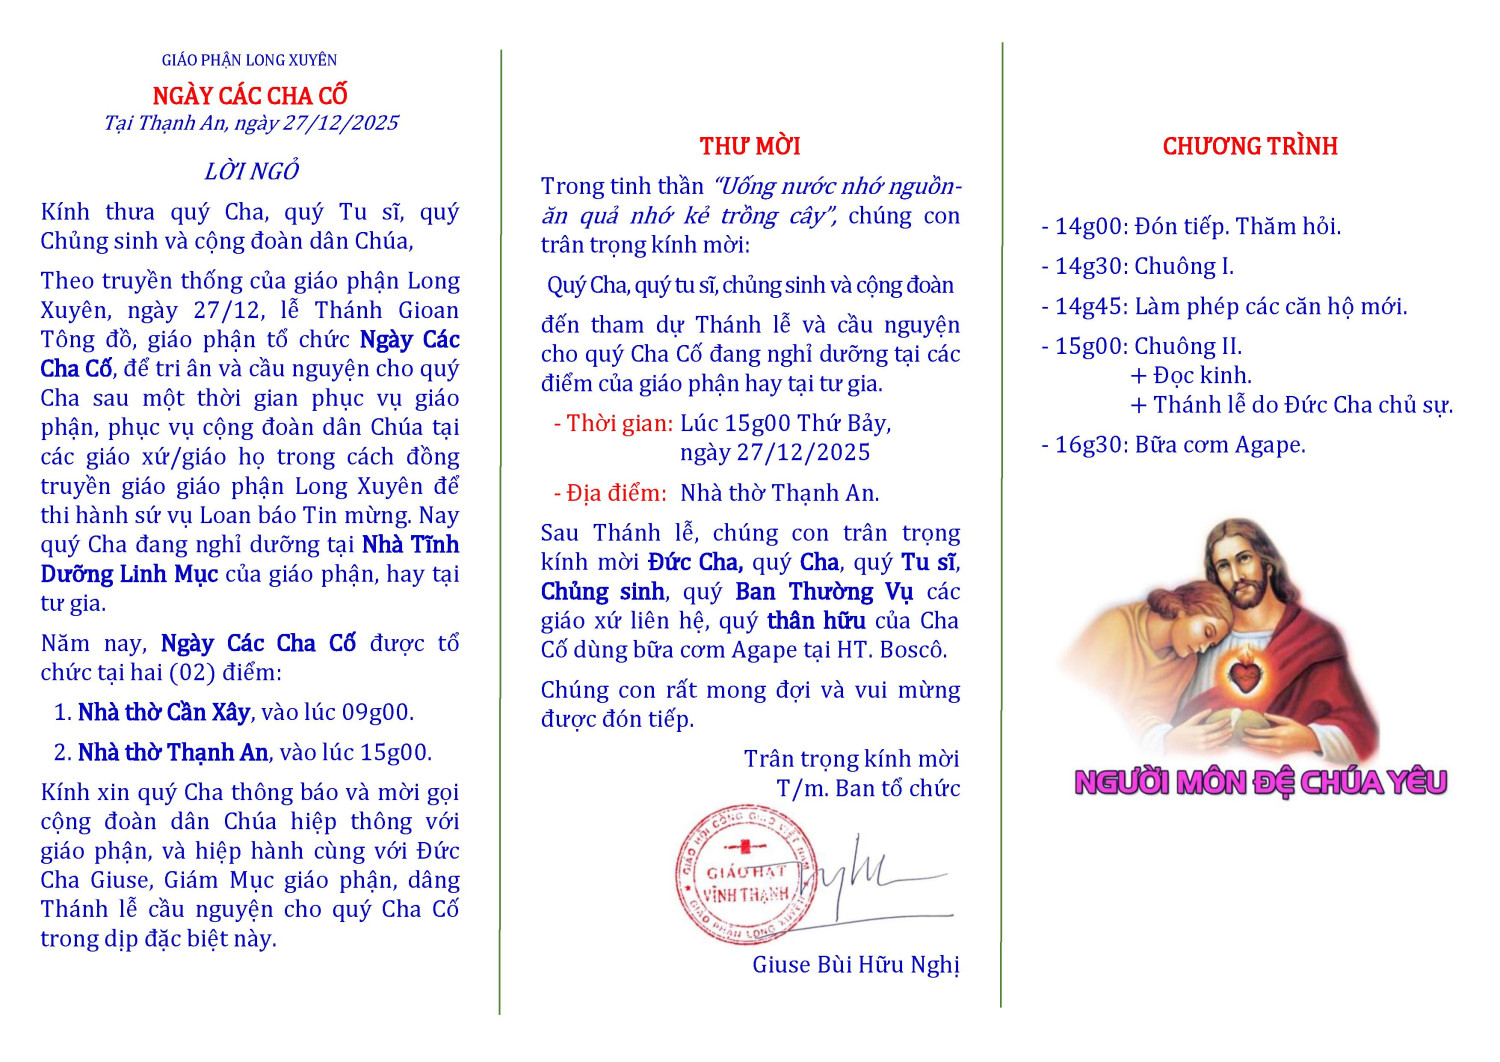 GIÁO PHẬN LONG XUYÊN
NGÀY CÁC CHA CỐ
Tại Thạnh An, ngày 27/12/2025
LỜI NGỎ
Kính thưa quý Cha, quý Tu sĩ, quý
Chủng sinh và cộng đoàn dân Chúa,
Theo truyền thống của giáo phận Long
Xuyên, ngày 27/12, lễ Thánh Gioan
Tông đồ, giáo phận tổ chức Ngày Các
Cha Cố, để tri ân và cầu nguyện cho quý
Cha sau một thời gian phục vụ giáo
phận, phục vụ cộng đoàn dân Chúa tại
các giáo xứ/giáo họ trong cách đồng
truyền giáo giáo phận Long Xuyên để
thi hành sứ vụ Loan báo Tin mừng. Nay
quý Cha đang nghỉ dưỡng tại Nhà Tĩnh
Dưỡng Linh Mục của giáo phận, hay tại
tư gia.
Năm nay, Ngày Các Cha Cố được tổ
chức tại hai (02) điểm:
1. Nhà thờ Cần Xây, vào lúc 09g00.
2. Nhà thờ Thạnh An, vào lúc 15g00.
Kính xin quý Cha thông báo và mời gọi
cộng đoàn dân Chúa hiệp thông với
giáo phận, và hiệp hành cùng với Đức
Cha Giuse, Giám Mục giáo phận, dâng
Thánh lễ cầu nguyện cho quý Cha Cố
trong dịp đặc biệt này.
THƯ MỜI
Trong tinh thần “Uống nước nhớ nguồn-
ăn quả nhớ kẻ trồng cây”, chúng con
trân trọng kính mời:
Quý Cha, quý tu sĩ, chủng sinh và cộng đoàn
đến tham dự Thánh lễ và cầu nguyện
cho quý Cha Cố đang nghỉ dưỡng tại các
điểm của giáo phận hay tại tư gia.
- Thời gian: Lúc 15g00 Thứ Bảy,
ngày 27/12/2025
- Địa điểm: Nhà thờ Thạnh An.
Sau Thánh lễ, chúng con trân trọng
kính mời Đức Cha, quý Cha, quý Tu sĩ,
Chủng sinh, quý Ban Thường Vụ các
giáo xứ liên hệ, quý thân hữu của Cha
Cố dùng bữa cơm Agape tại HT. Boscô.
Chúng con rất mong đợi và vui mừng
được đón tiếp.
Trân trọng kính mời
T/m. Ban tổ chức
GIÁO HỘI CÔNG GIÁO VIỆT NAM
GIÁO HẠT
VĨNH THẠNH
GIÁO PHẬN LONG XUYÊN
Giuse Bùi Hữu Nghị
CHƯƠNG TRÌNH
- 14g00: Đón tiếp. Thăm hỏi.
- 14g30: Chuông I.
- 14g45: Làm phép các căn hộ mới.
- 15g00: Chuông II.
+ Đọc kinh.
+ Thánh lễ do Đức Cha chủ sự.
- 16g30: Bữa cơm Agape.
NGƯỜI MÔN ĐỆ CHÚA YÊU